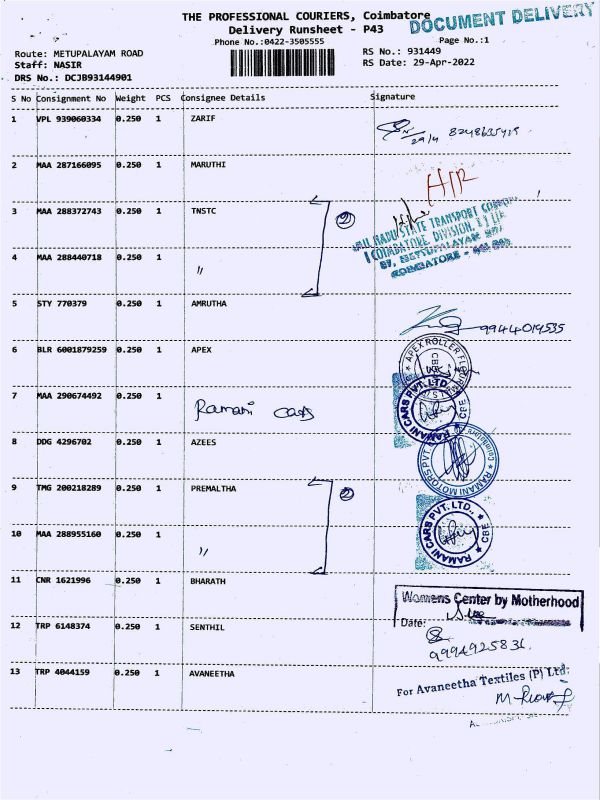 THE PROFESSIONAL COURIERS, Coimbatore
DOCUMENT DELIVERY
Delivery Runsheet - P43
Phone No.:0422-3505555
Page No.:1
Route: METUPALAYAM ROAD
RS No.: 931449
Staff: NASIR
RS Date: 29-Apr-2022
DRS No.: DCJB93144901
S No Consignment No Weight PCS Consignee Details Signature
1 VPL 939060334 0.250 1 ZARIF
29/4
2 MAA 287166095 0.250 1 MARUTHI
3 MAA 288372743 0.250 1 TNSTC
2
TAMIL NADU STATE TRANSPORT
COIMBATORE, DIVISION.
METTUPALAYAM
COIMBATORE -
4 MAA 288440718 0.250 1 〃
5 STY 770379 0.250 1 AMRUTHA
9944019535
6 BLR 6001879259 0.250 1 APEX
APEX ROLLER
7 MAA 290674492 0.250 1 Ramani Cars
RAMANI CARS PVT. LTD. CBE
8 DDG 4296702 0.250 1 AZEES
RAMANI MOTORS PVT. Coimbatore
9 TMG 200218289 0.250 1 PREMALTHA
2
10 MAA 288955160 0.250 1 〃
RAMANI CARS PVT. LTD., CBE
11 CNR 1621996 0.250 1 BHARATH
Womens Center by Motherhood
Date:
12 TRP 6148374 0.250 1 SENTHIL
9994925831
13 TRP 4044159 0.250 1 AVANEETHA
For Avaneetha Textiles (P) Ltd.